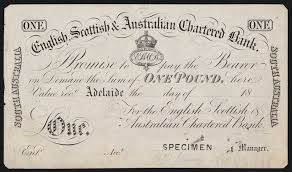 ONE ONE
English, Scottish & Australian Chartered Bank.
SOUTH AUSTRALIA
SOUTH AUSTRALIA
Promise to pay the Bearer
on Demand the Sum of ONE POUND, here
Value recd. Adelaide the day of 18
For the English, Scottish &
Australian Chartered Bank.
One.
SPECIMEN
Entd. Acct. Manager.